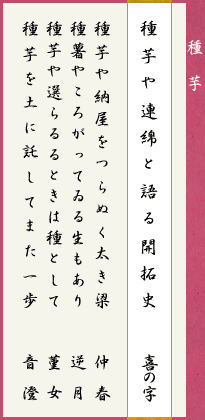 種芋
種芋や連綿と語る開拓史 喜の字
種芋や納屋をつらぬく太き梁 仲春
種薯やころがってゐる生もあり 逆月
種芋や選らるるときは種として 菫女
種芋を土に託してまた一歩 音澄